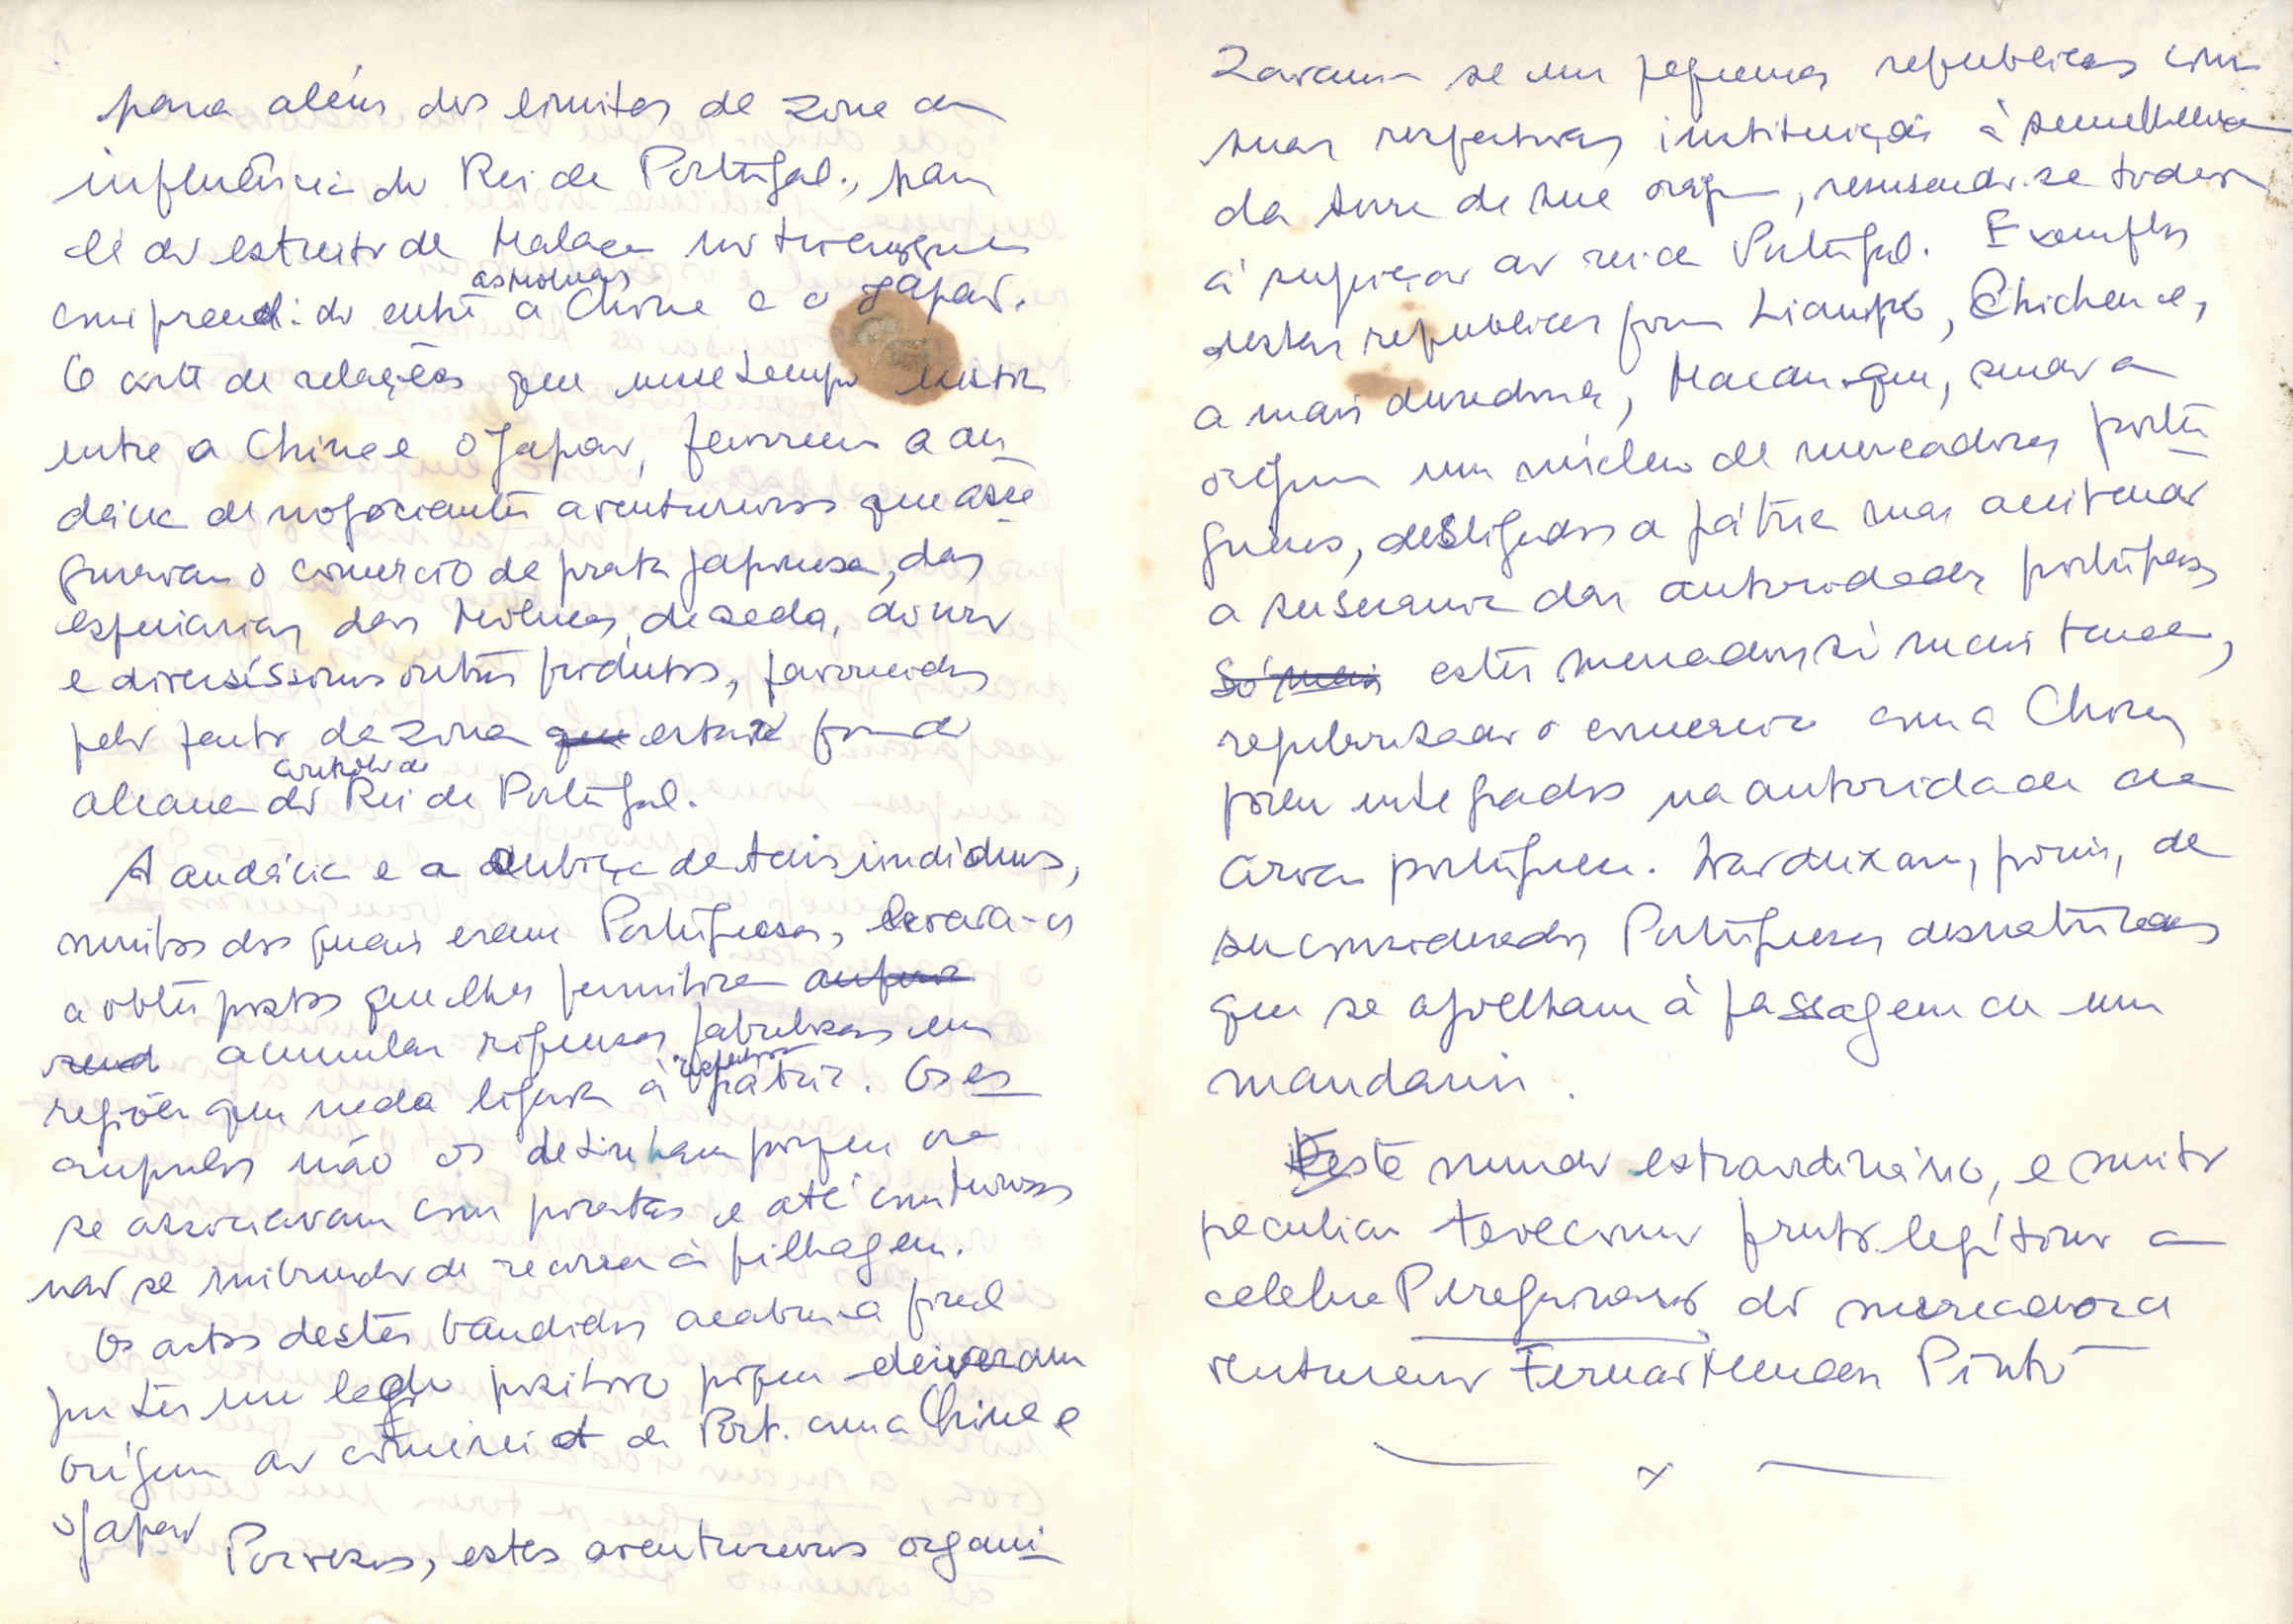 para além dos limites da zona de
influência do Rei de Portugal, para
lá do estreito de Malaca no triangulo
as Molucas
comprendido entre a China e o Japão.
O corte de relações que nesse tempo existia
entre a China e o Japão, favoreceu a au
dácia de negociantes aventureiros que asse
guravam o comercio da prata japonesa, das
especiarias das Molucas, da seda, do ouro
e diversíssimos outros produtos, favorecidos
pelo facto da zona que estar fora do
controlo do
alcance do Rei de Portugal.
A audácia e a cubiça de tais individuos,
muitos dos quais eram Portugueses, levava-os
a obter postos que lhes permitiram
acumular riquezas fabulosas em
respectiva
regiões que nada ligava à pátria. Os es
crupulos não os detinham porque ora
se associavam com piratas e até com turcos
não se inibindo de recorrer à pilhagem.
Os actos destes bandidos acabaria final
por ter um lado positivo porque deiveram
origem ao comercio de Port. com a China e
o Japão
Por vezes, estes aventureiros organi
zavam-se em pequenas republicas com
suas respectivas instituições à semelhança
da terra de sua origem, recusando-se todavia
à sujeição ao rei de Portugal. Exemplos
destas republicas foram Liampó, Chincheu e,
a mais duradoura, Macau que, senão a
origem um núcleo de mercadores portu
gueses, desligados a pátria mas aceitando
a suserania das autoridades portuguesas
Só mais estes mercadores só mais tarde,
regularizado o comercio com a China
foram integrados na autoridade da
coroa portuguesa. Não deixam, porém, de
ser considerados Portugueses desnaturados
que se ajoelham à passagem de um
mandarim.
Este mundo extraordinário, e muito
peculiar teve como fruto legítimo a
celebre Peregrinação do mercador a
ventureiro Fernão Mendes Pinto
x